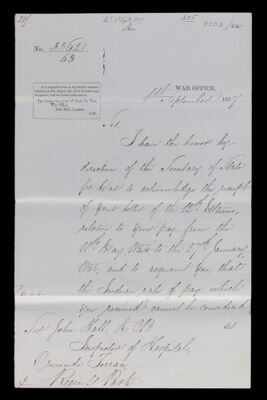 No. 33621
53
It is requested that in any further communication on this subject, the above Number may be quoted, and the Letter addressed to
The Under Secretary of State for War,
War Office,
Pall Mall, London,
S.W.
WAR OFFICE,
September 1857
Sir,
I have the honor by
direction of the Secretary of State
for War to acknowledge the receipt
of your letter of the 12th Ultimo,
relating to your pay from the
May 1854 to the 27th January
1855, and to acquaint you that
the Indian rate of pay which
you received cannot be considered
as
Sir John Hall, K.C.B.
Inspector of Hospitals,
Terrace
Park